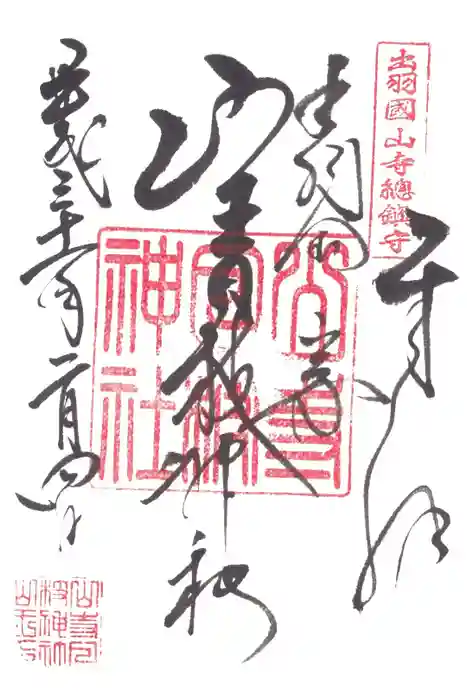 出羽國山寺總鎮守
奉拝
出羽國 山寺
山王日枝神社
平成三十一年二月四日
山寺
日枝
神社